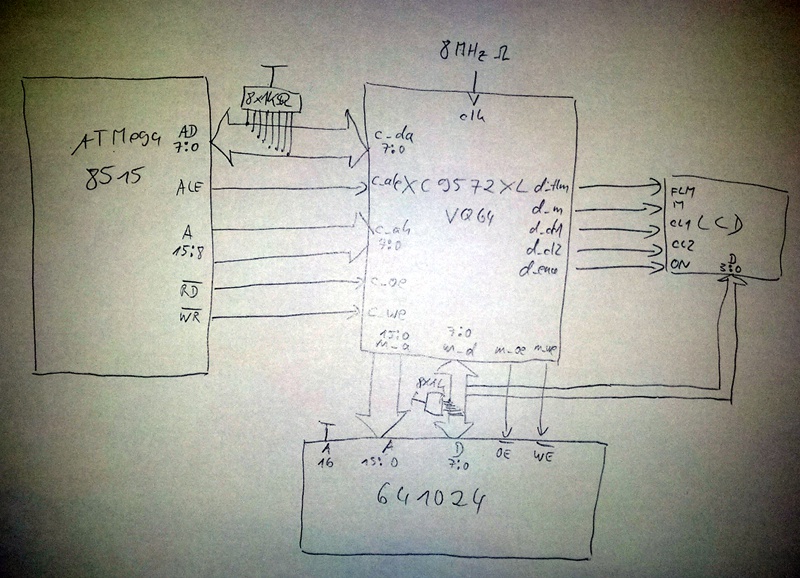 8MHz Ω
8x1kΩ
clk
ATMega
8515
AD
7:0
ALE
A
15:8
RD
WR
c_da
7:0
c_ale
XC9572XL
VQ64
c_ah
7:0
c_oe
c_we
d_flm
d_m
d_cl1
d_cl2
d_ena
15:0
m_a
7:0
m_d
m_oe
m_we
FLM
M
CL1
CL2
ON
LCD
D
3:0
8x1k
A
16
A
15:0
D
7:0
OE
WE
641024